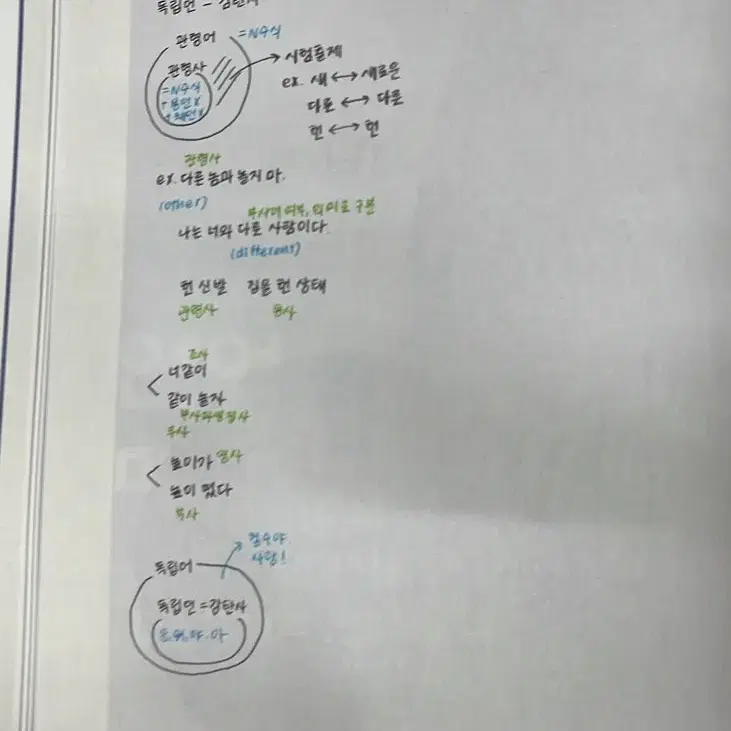 독립언 - 감탄사
관형어 = N수식
관형사 → 시험출제
= N수식
+ 용언 X
+ 체언 X
ex. 새 ↔ 새로운
다른 ↔ 다른
헌 ↔ 헌
관형사
ex. 다른 놈과 놀지 마.
(other)
부사어 여부, 의미로 구분
나는 너와 다른 사람이다.
(different)
헌 신발 집을 헌 상태
관형사 동사
조사
너같이
같이 놀자
부사파생접사
부사
높이가 명사
높이 떴다
부사
철수야
사랑!
독립어
독립언 = 감탄사